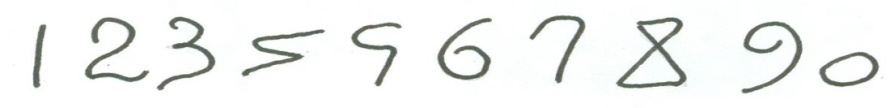 1 2 3 5 9 6 7 8 9 0